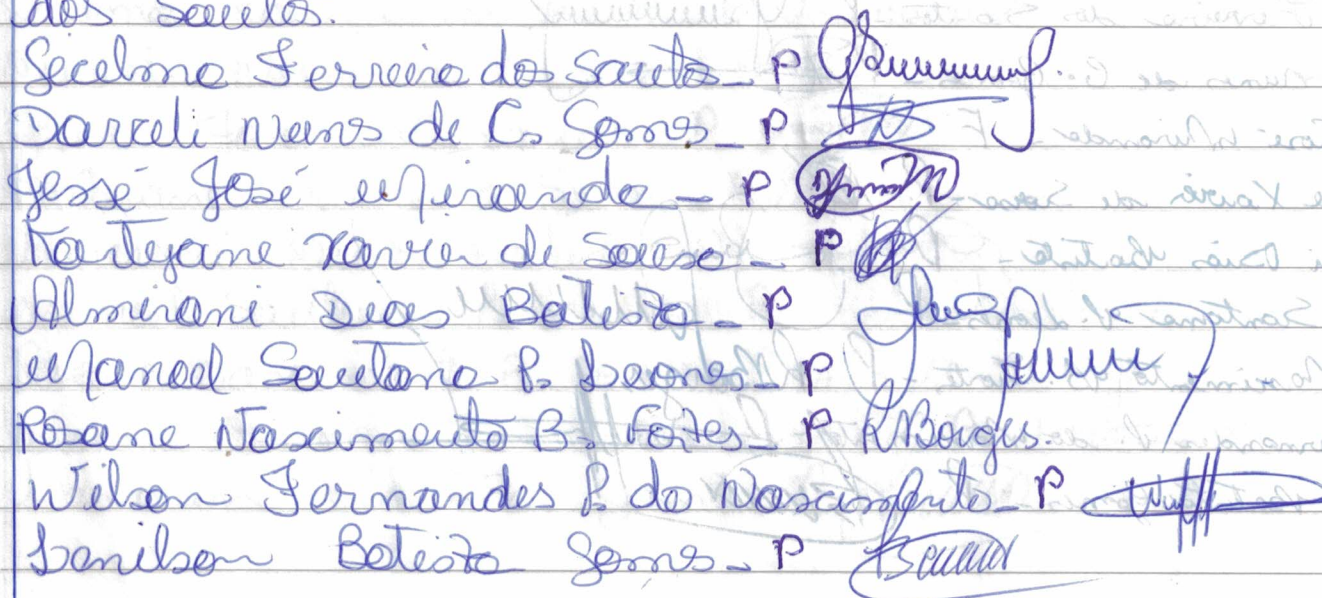 dos Santos.
Gecelma Ferreira dos Santos - P
Darceli Nunes de C. Gomes - P
Jessé José Miranda - P
Kartejane Xavier de Sousa - P
Almerani Dias Batista - P
Manoel Santana P. Leones - P
Rosane Nascimento B. Fortes - P RBorges.
Wilson Fernandes P. do Nascimento - P
Denilson Batista Gomes - P